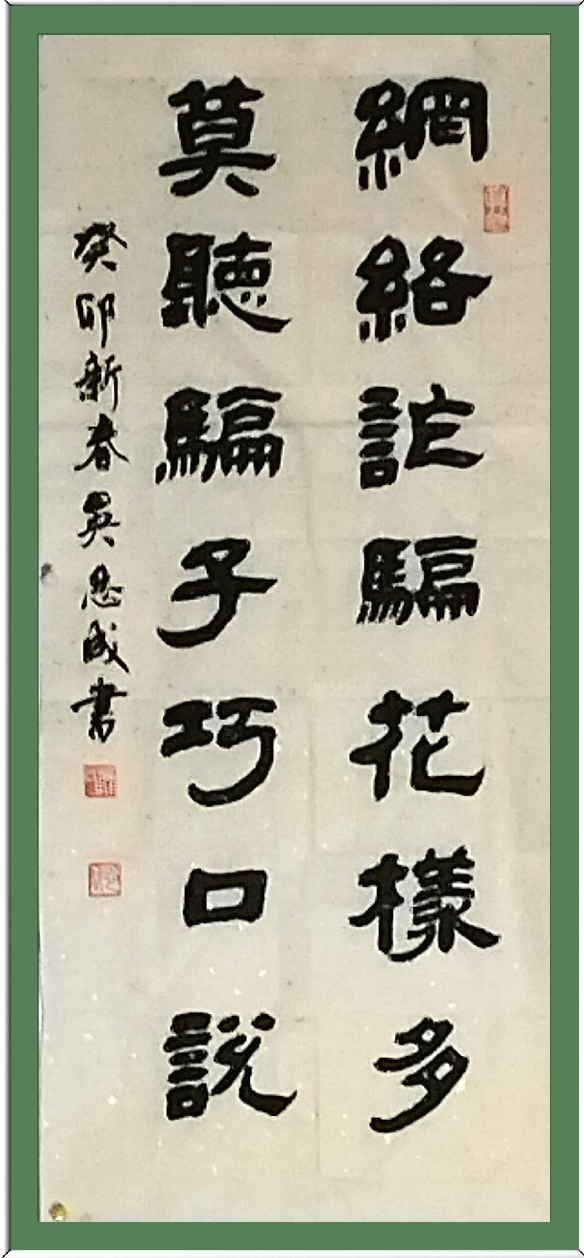 網絡詐騙花樣多
莫聽騙子巧口說
癸卯新春吳忠成書